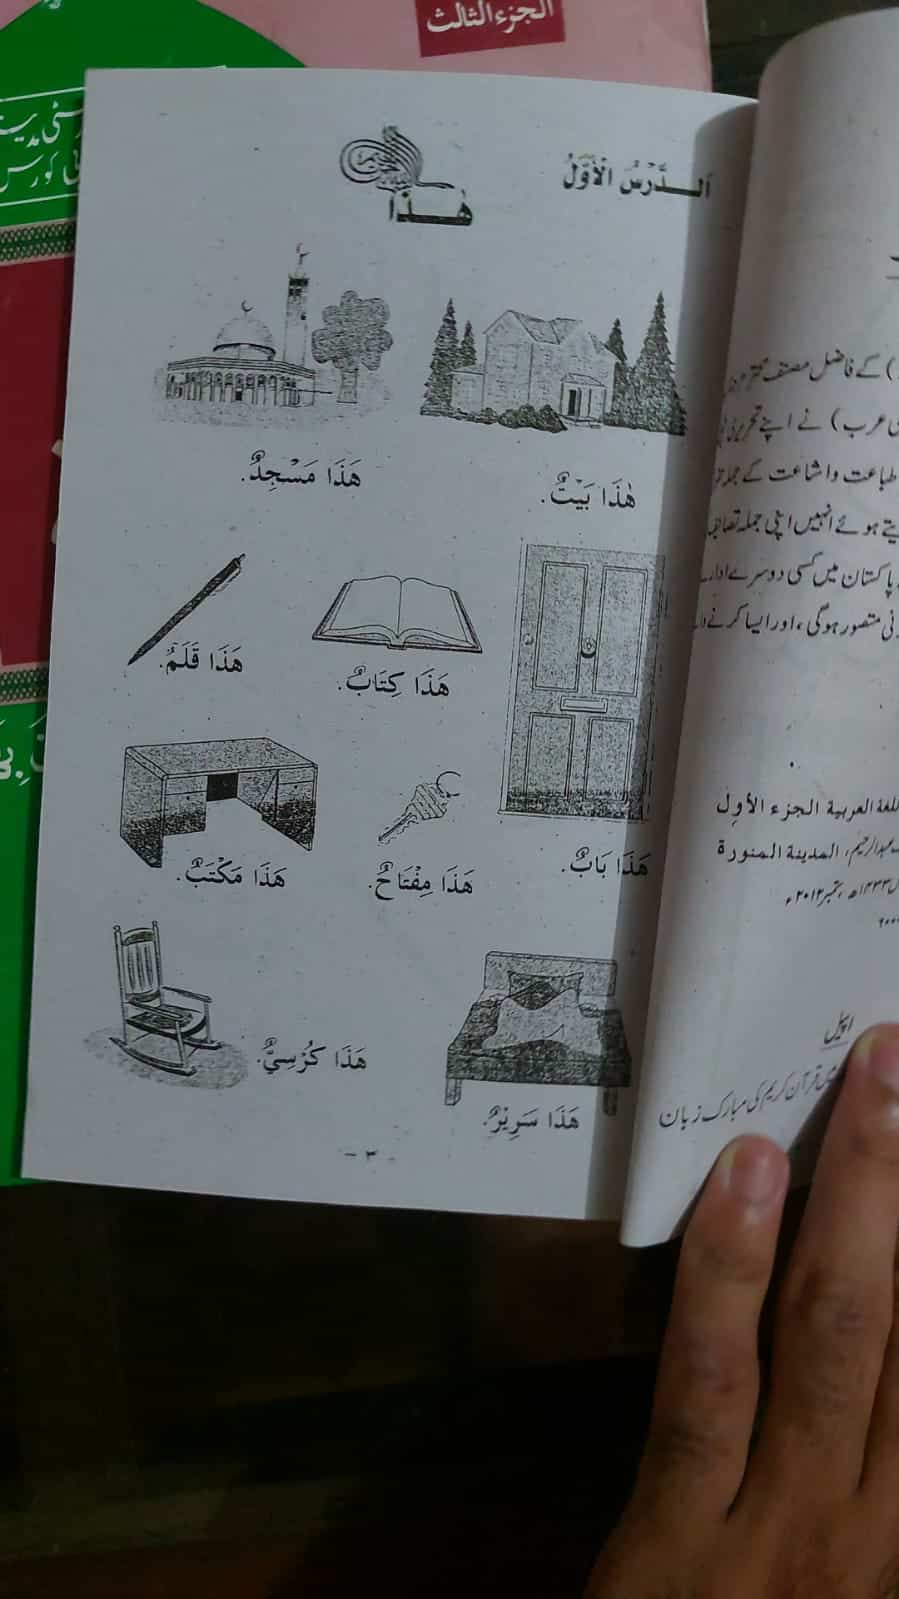 الجزء الثالث
کورس
الدَّرْسُ الْأَوَّلُ
هٰذَا
هٰذَا بَيْتٌ.
هَذَا مَسْجِدٌ.
هَذَا كِتَابٌ.
هَذَا قَلَمٌ.
هَذَا بَابٌ.
هَذَا مِفْتَاحٌ.
هَذَا مَكْتَبٌ.
هَذَا سَرِيْرٌ.
هَذَا كُرْسِيٌّ.
- ٣ -
) کے فاضل مصنف محترم
عرب) نے اپنے تحریری
طباعت و اشاعت کے جملہ
ہوئے انہیں اپنی جملہ
پاکستان میں کسی دوسرے
متصور ہوگی، اور ایسا کرنے
اللغة العربية الجزء الأول
عبدالرحیم، المدينة المنورة
۱۴۳۳ھ، ستمبر ۲۰۱۲ء
اپیل
قرآن کریم کی مبارک زبان